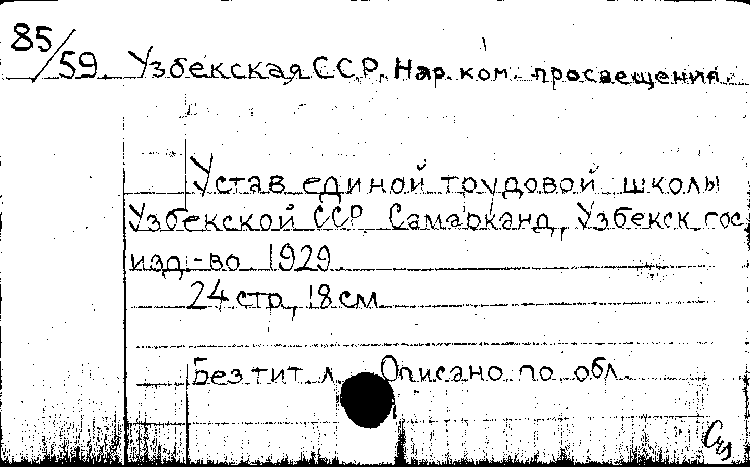 85/59. Узбекская ССР. Нар. ком. просвещения.
Устав единой трудовой школы
Узбекской ССР. Самарканд, Узбекск. гос.
изд-во 1929.
24 стр., 18 см.
Без тит. л. Описано по обл.